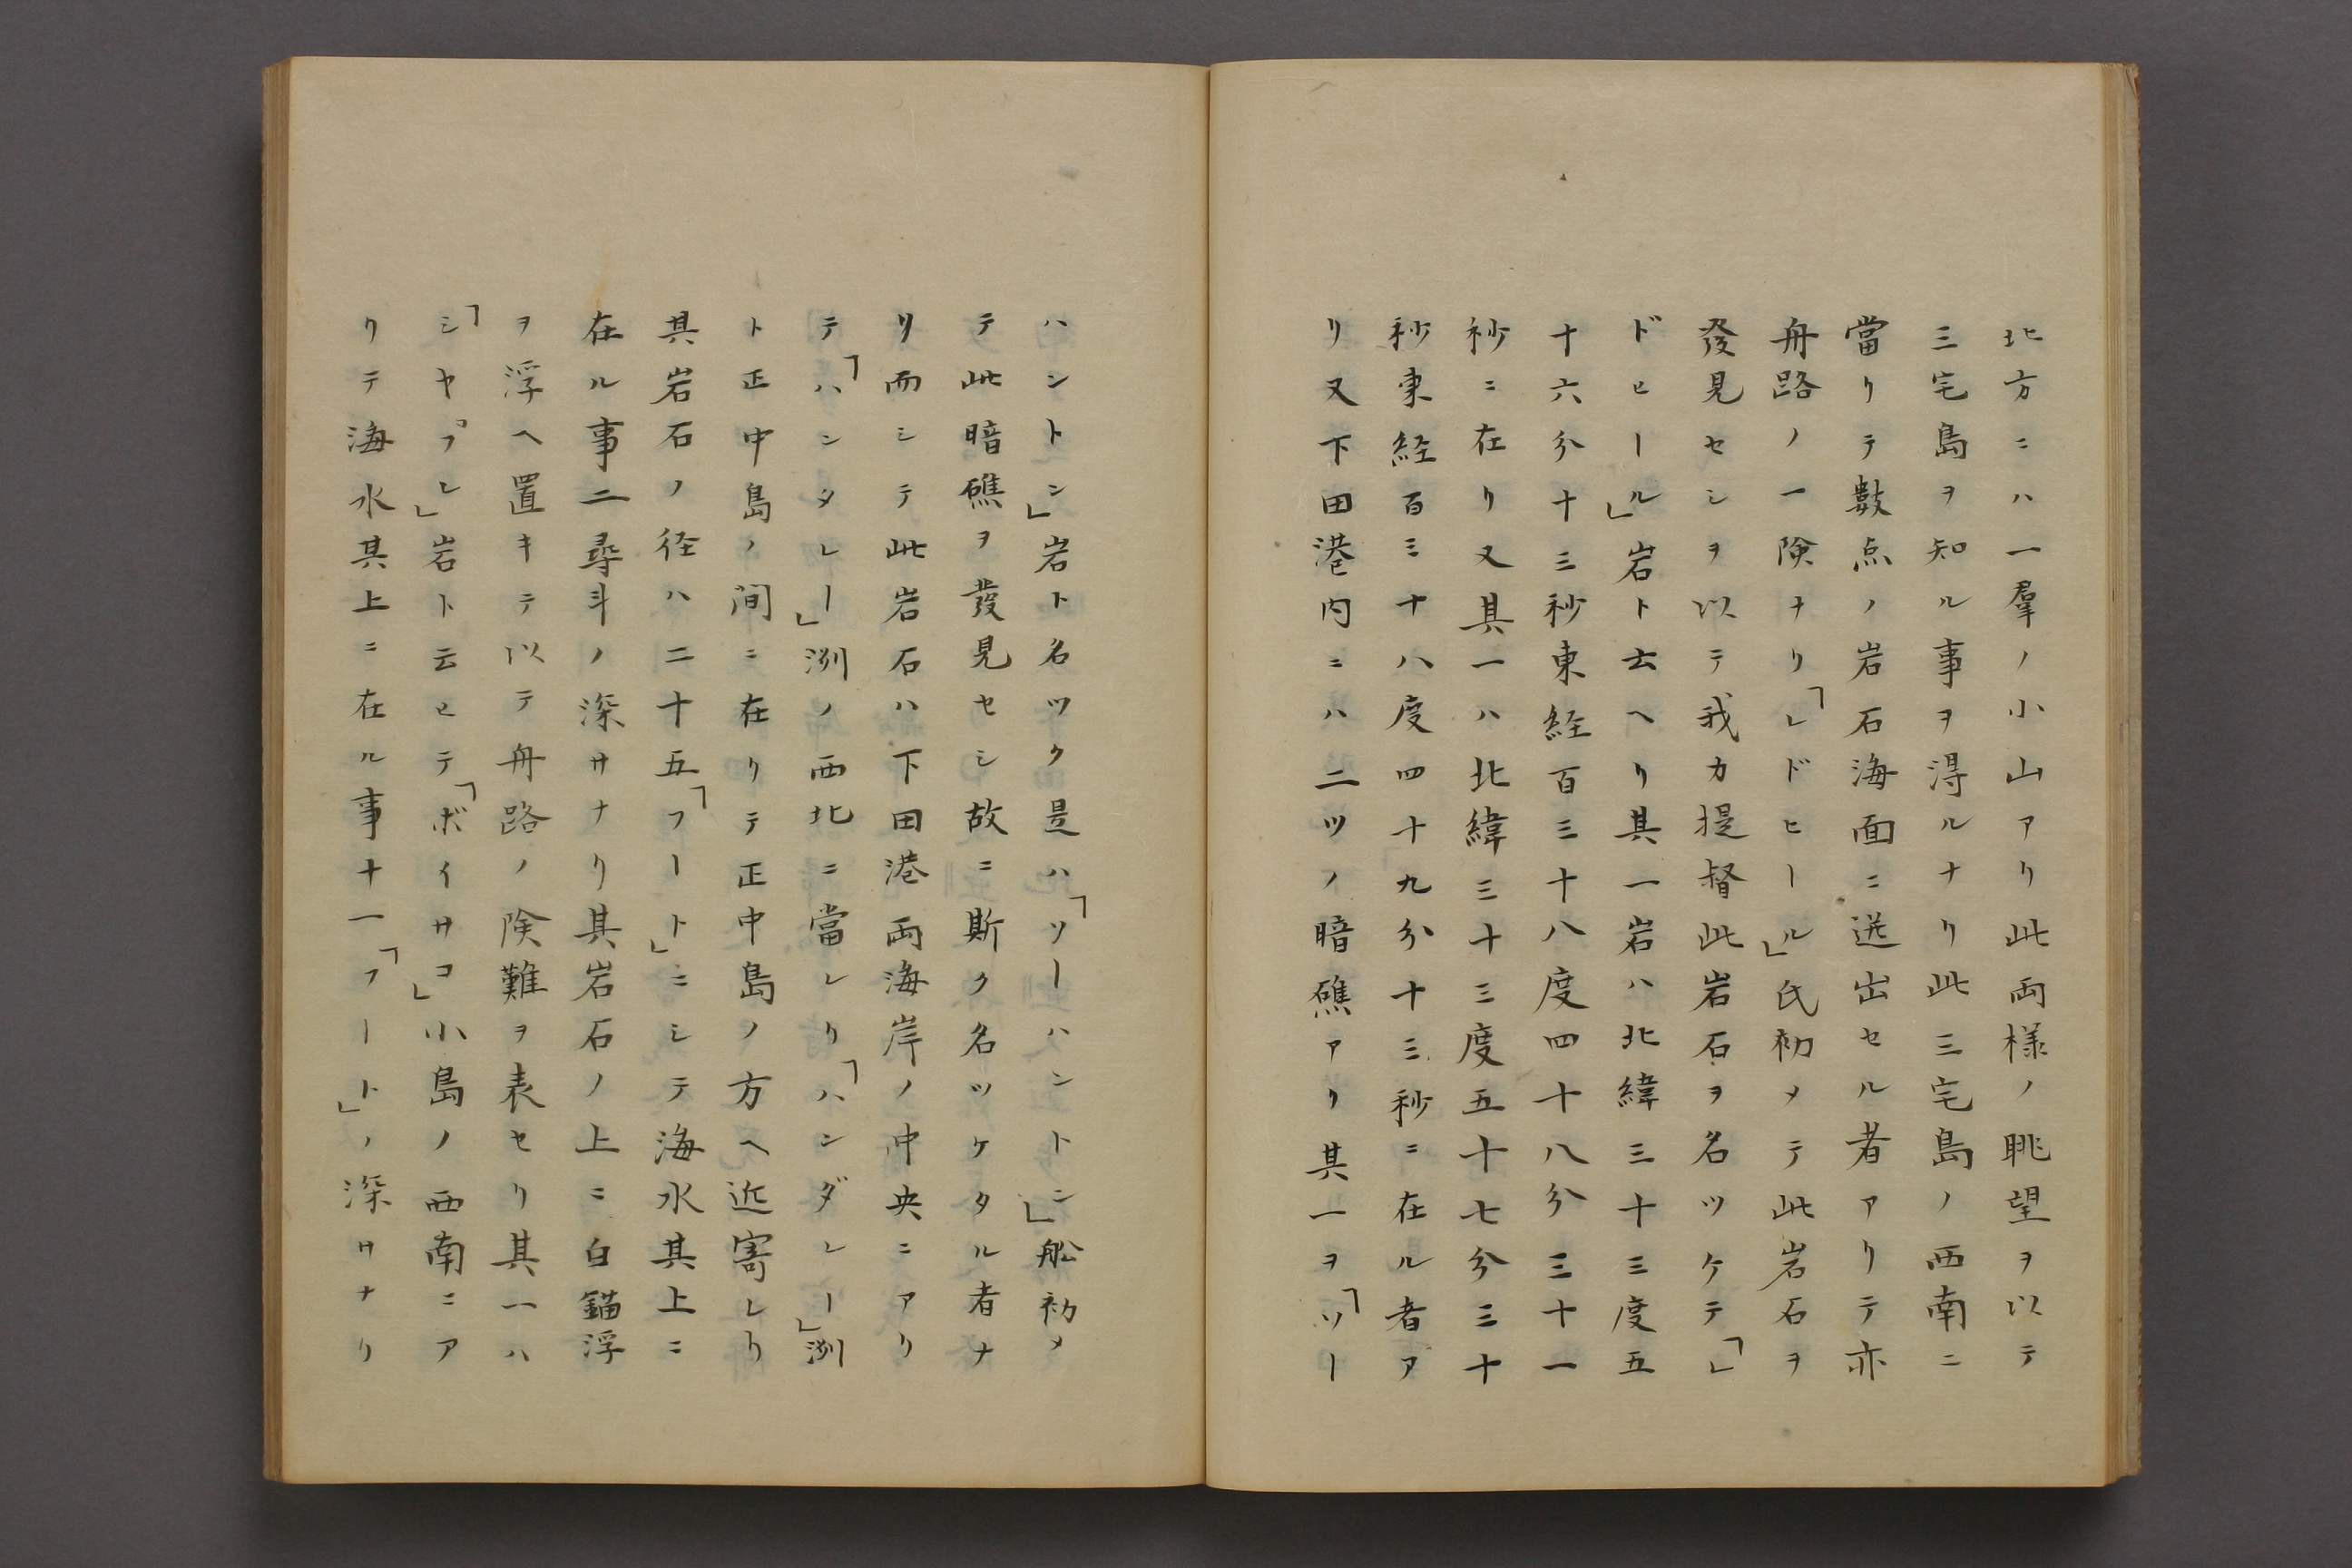 北方ニハ一羣ノ小山アリ此両様ノ眺望ヲ以テ
三宅島ヲ知ル事ヲ得ルナリ此三宅島ノ西南ニ
當リテ數点ノ岩石海面ニ送出セル者アリテ亦
舟路ノ一険ナリ「レドヒール」氏初メテ此岩石ヲ
發見セシヲ以テ我カ提督此岩石ヲ名ツケテ「レ
ドヒール」岩ト云ヘリ其一岩ハ北緯三十三度五
十六分十三秒東経百三十八度四十八分三十一
秒ニ在リ又其一ハ北緯三十三度五十七分三十
秒東経百三十八度四十九分十三秒ニ在ル者ア
リ又下田港内ニハ二ツノ暗礁アリ其一ヲ「ツー
ハントン」岩ト名ツク是ハ「ソーハントン」舩初メ
テ此暗礁ヲ發見セシ故ニ斯ク名ツケタル者ナ
リ而シテ此岩石ハ下田港両海岸ノ中央ニアリ
テ「ハンタレー」渕ノ西北ニ當レリ「ハンダレー」渕
ト正中島ノ間ニ在リテ正中島ノ方ヘ近寄レリ
其岩石ノ径ハ二十五「フート」ニシテ海水其上ニ
在ル事二尋斗ノ深サナリ其岩石ノ上ニ白錨浮
ヲ浮ヘ置キテ以テ舟路ノ険難ヲ表セリ其一ハ
「シヤプレ」岩ト云ヒテ「ボイサコ」小島ノ西南ニア
リテ海水其上ニ在ル事十一「フート」ノ深サナリ